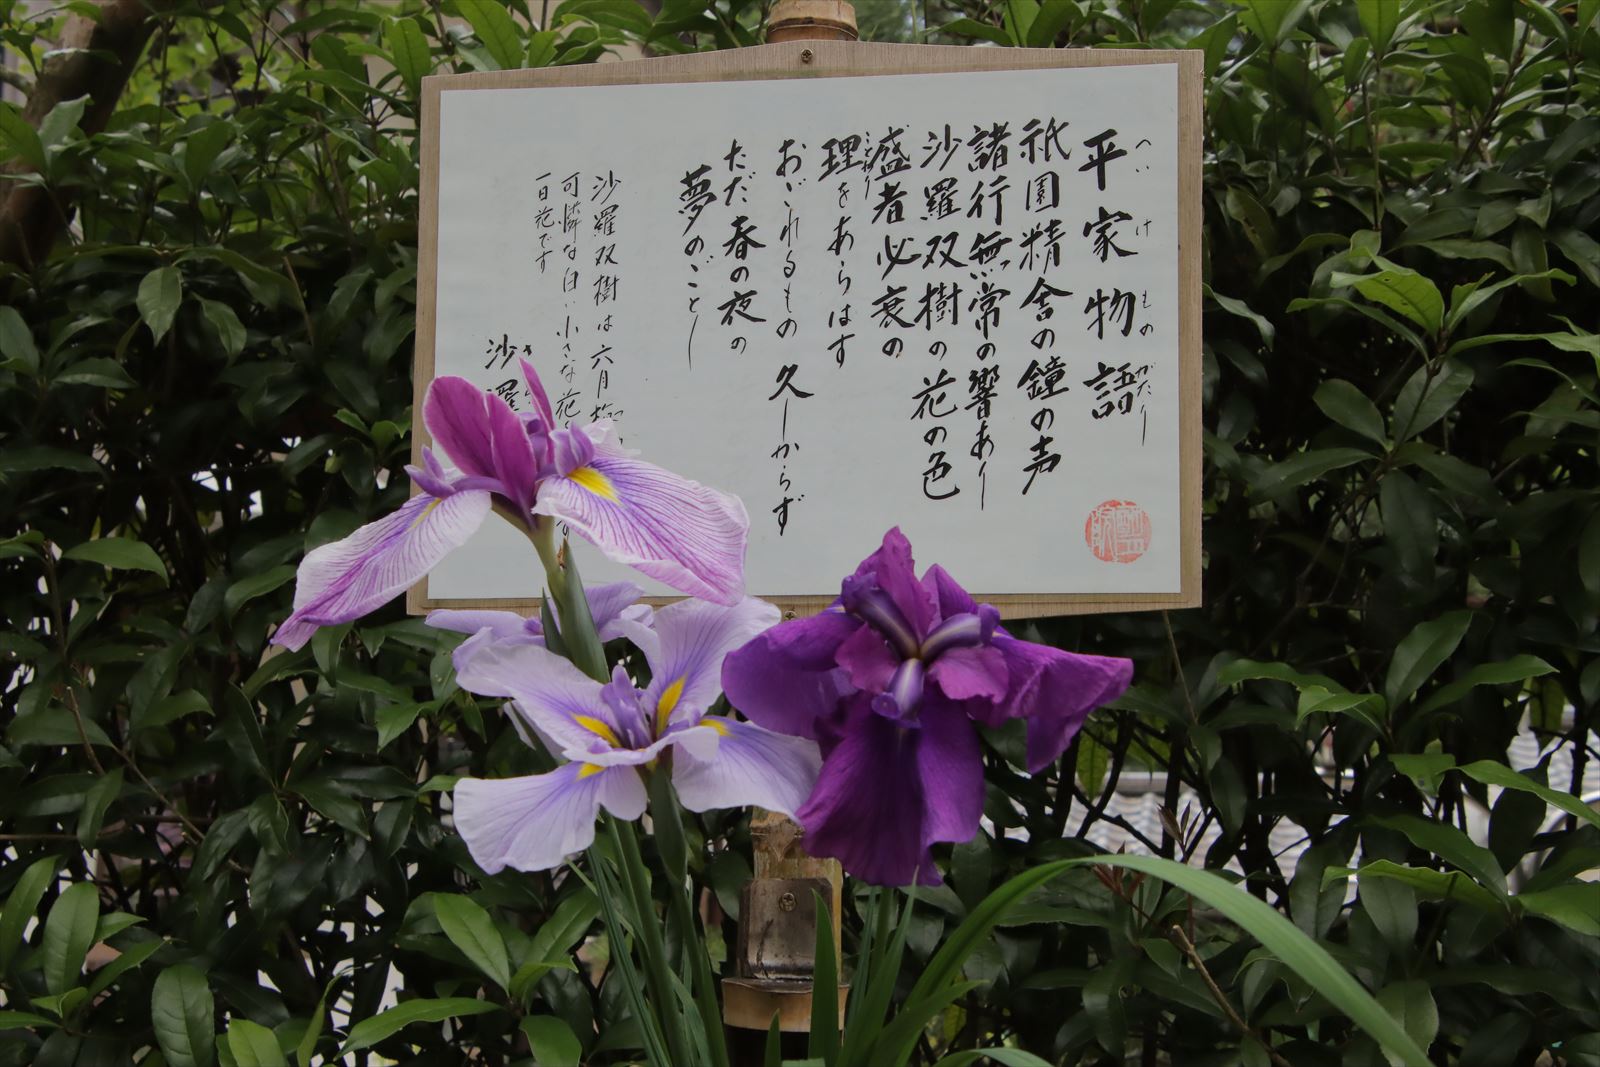 平家物語
へいけものがたり
祇園精舎の鐘の声
諸行無常の響あり
沙羅双樹の花の色
盛者必衰の
理をあらはす
ことわり
おごれるもの 久しからず
ただ春の夜の
夢のごとし
沙羅双樹は六月
可憐な白い小さな花
一日花です
沙羅